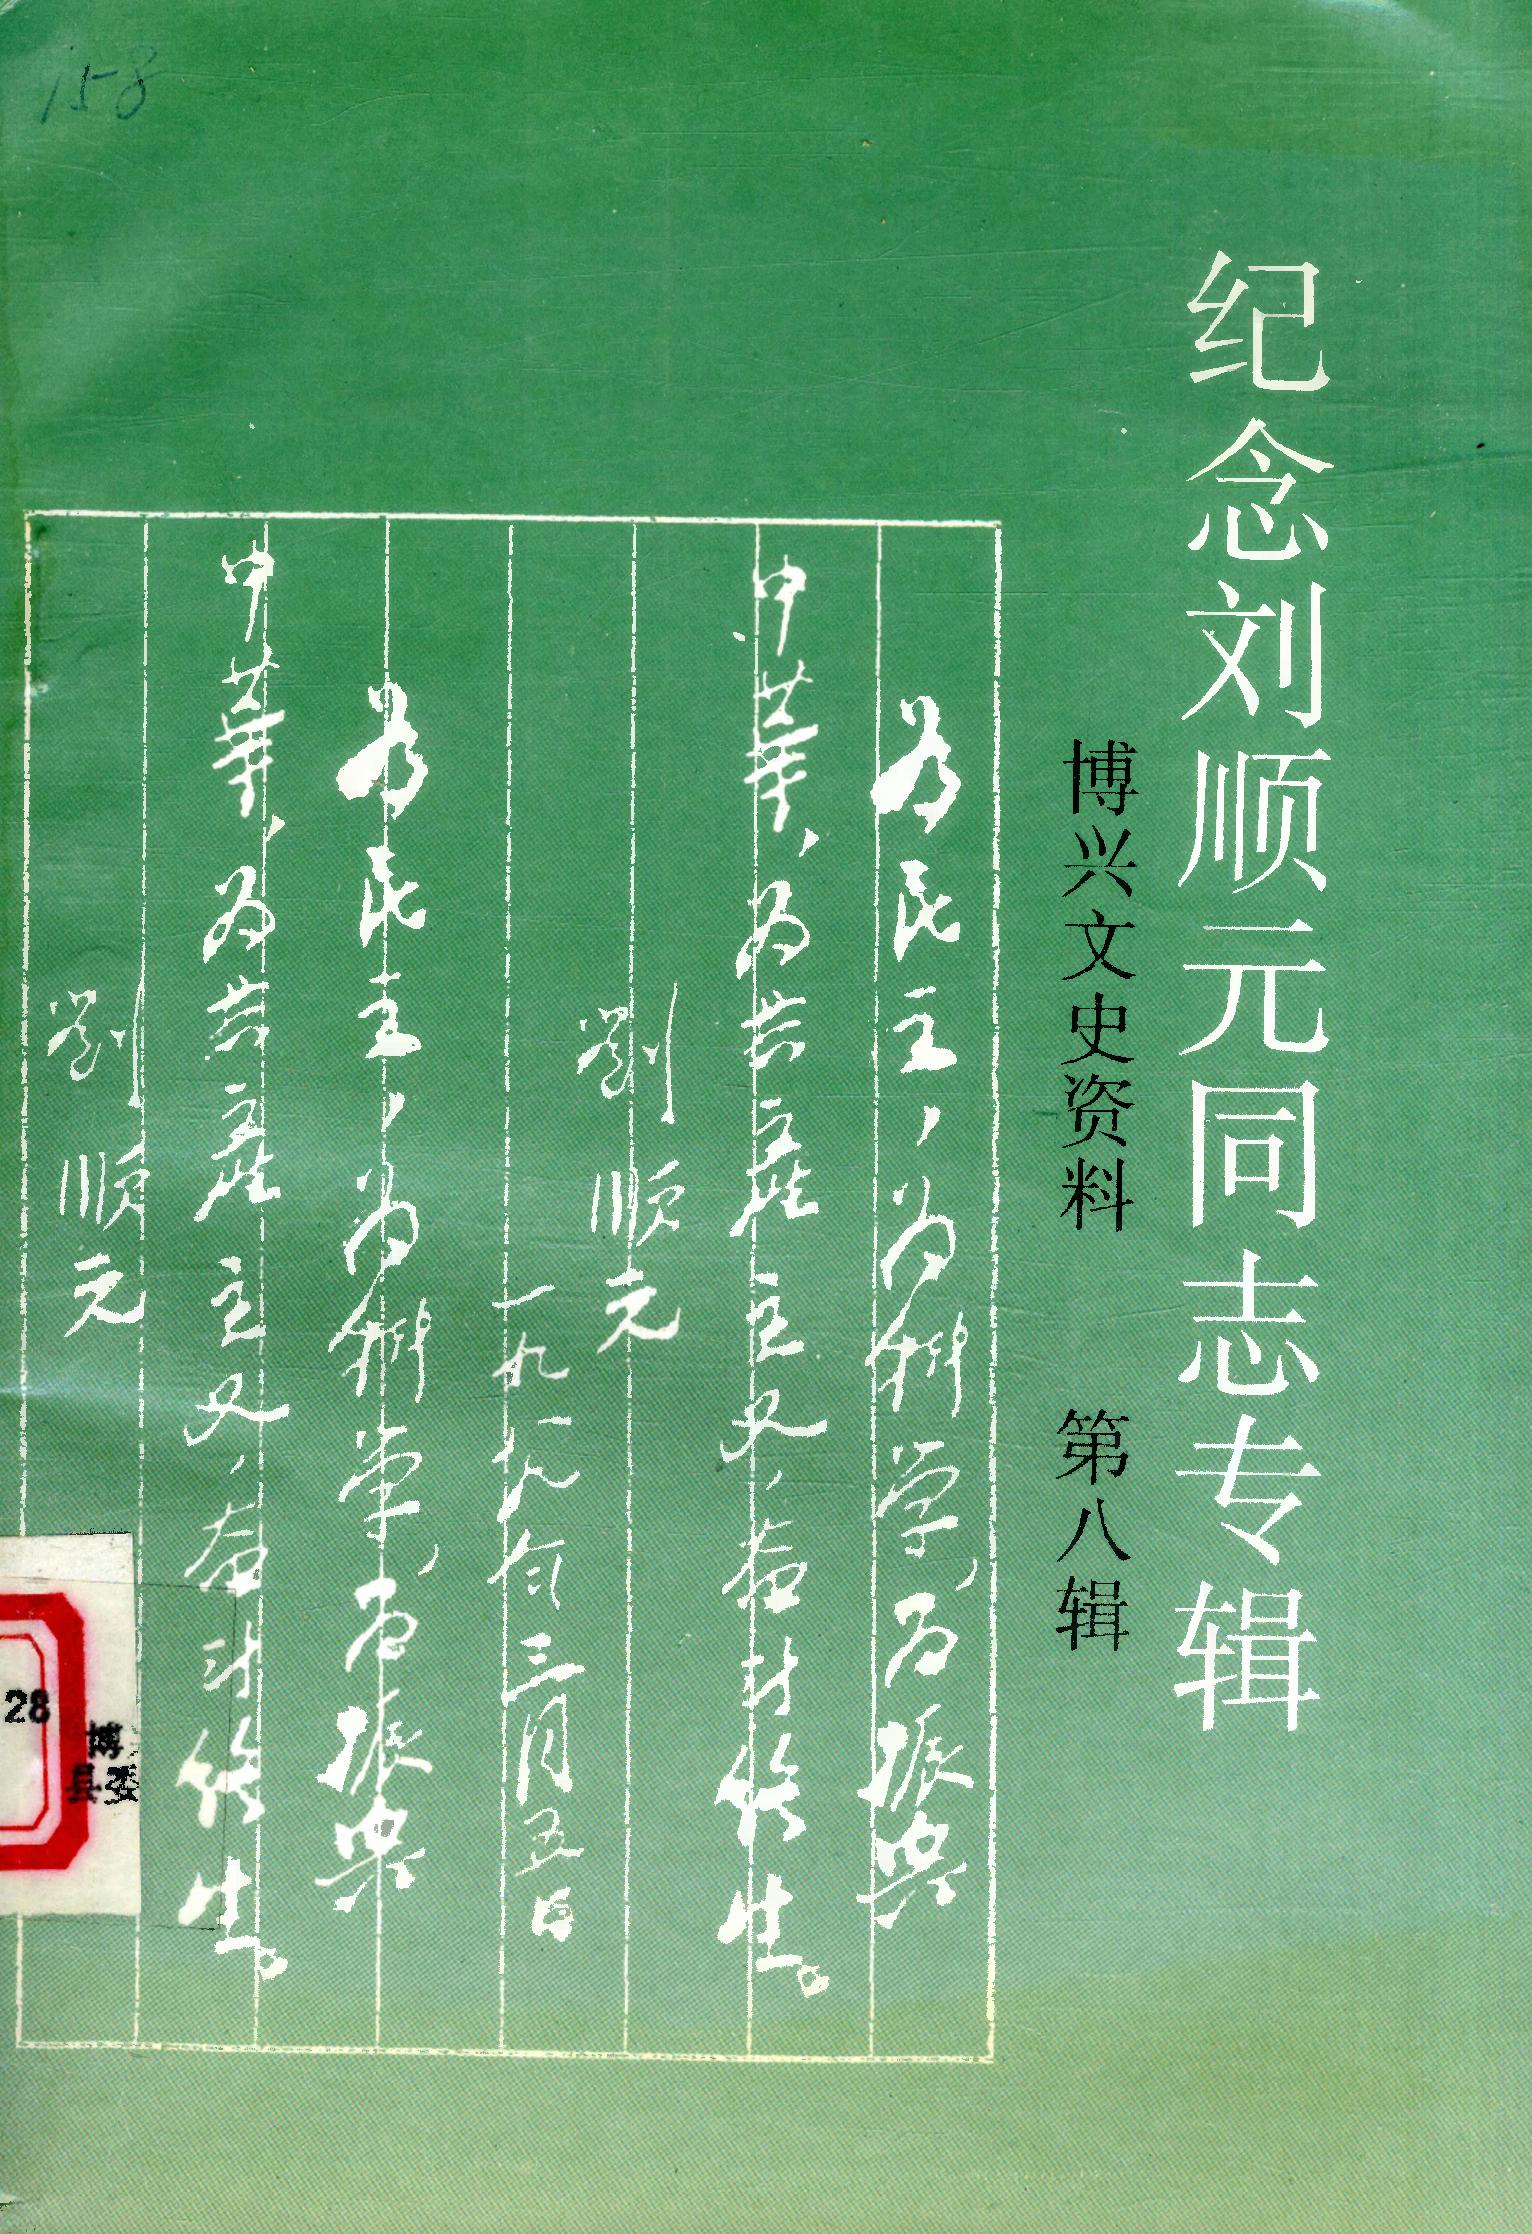 158
纪念刘顺元同志专辑
博兴文史资料 第八辑
为民主,为科学,为振兴
中華,为共产主义,奋斗终生。
劉顺元
一九九一年三月五日
为民主,为科学,为振兴
中華,为共产主义,奋斗终生。
劉顺元
28
博
县委